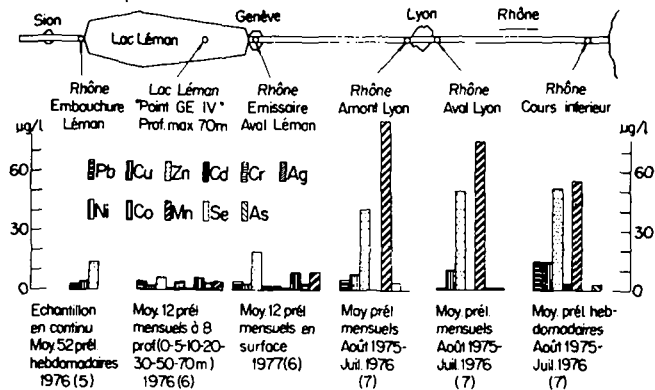 Sion
Genève
Lyon
Rhône
Lac Léman
Rhône
Embouchure
Léman
Lac Léman
"Point GE IV"
Prof. max 70m
Rhône
Emissaire
Aval Léman
Rhône
Amont Lyon
Rhône
Aval Lyon
Rhône
Cours interieur
µg/l
µg/l
60
30
0
60
30
0
Pb Cu Zn Cd Cr Ag
Ni Co Mn Se As
Echantillon
en continu
Moy. 52 prél.
hebdomadaires
1976 (5)
Moy. 12 prél
mensuels à 8
prof (0-5-10-20-
30-50-70m)
1976 (6)
Moy. 12 prél
mensuels en
surface
1977 (6)
Moy prél
mensuels
Août 1975-
Juil. 1976
(7)
Moy. prél.
mensuels
Août 1975-
Juil. 1976
(7)
Moy. prél heb-
domadaires
Août 1975-
Juil. 1976
(7)